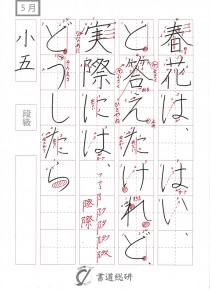 5月
小五
段級
春花は、はい、
と答えたけれど、
実際には、
どうしたら
際
際
書道総研